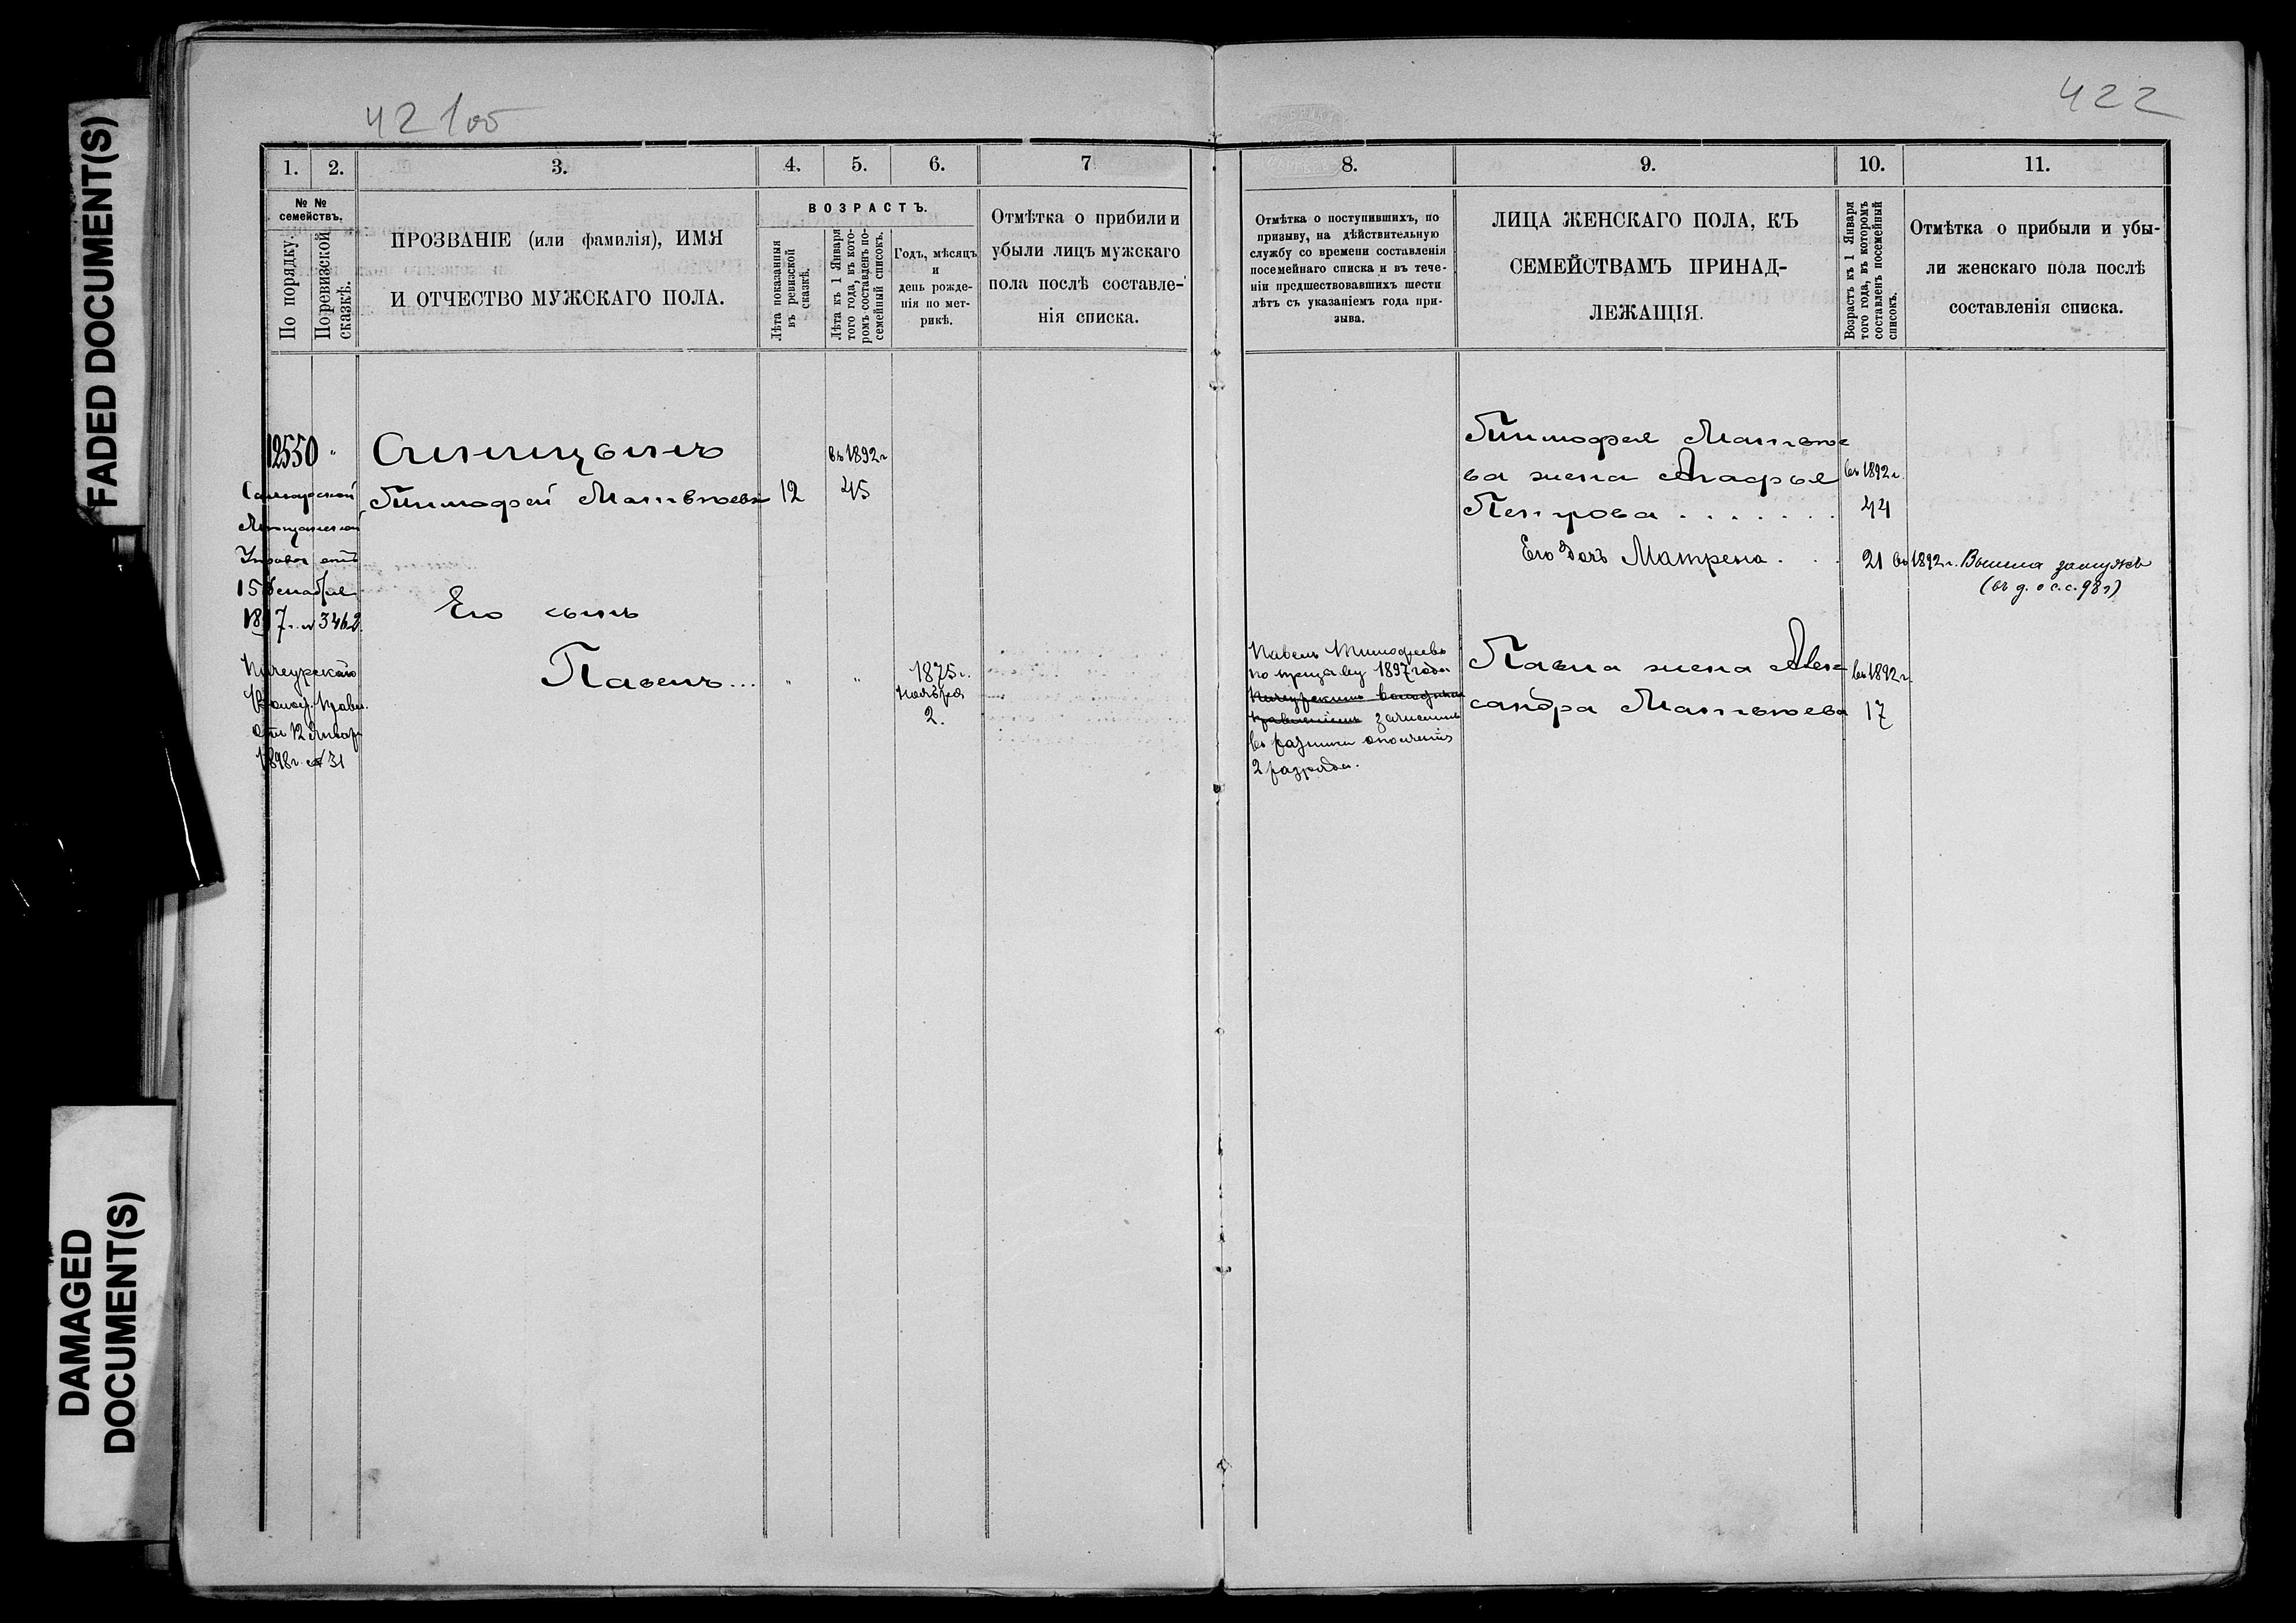 FADED DOCUMENT(S)
DAMAGED
DOCUMENT(S)
421об
422
1.
2.
3.
4.
5.
6.
7
8.
9.
10.
11.
№ №
семействъ.
По порядку.
По ревизской
сказкѣ.
ПРОЗВАНІЕ (или фамилія), ИМЯ
И ОТЧЕСТВО МУЖСКАГО ПОЛА.
ВОЗРАСТЪ.
Лѣта показанныя
въ ревизской
сказкѣ.
Лѣта къ 1 Января
того года, въ кото-
ромъ составленъ по-
семейный списокъ.
Годъ, мѣсяцъ
и
день рожде-
нія по мет-
рикѣ.
Отмѣтка о прибыли и
убыли лицъ мужскаго
пола послѣ составле-
нія списка.
Отмѣтка о поступившихъ, по
призыву, на дѣйствительную
службу со времени составленія
посемейнаго списка и въ тече-
ніи предшествовавшихъ шести
лѣтъ съ указаніемъ года при-
зыва.
ЛИЦА ЖЕНСКАГО ПОЛА, КЪ
СЕМЕЙСТВАМЪ ПРИНАД-
ЛЕЖАЩІЯ.
Возрастъ къ 1 Января
того года, въ которомъ
составленъ посемейный
списокъ.
Отмѣтка о прибыли и убы-
ли женскаго пола послѣ
составленія списка.
12550 "
Самарской
Мѣщанской
Управы отъ
15 Декабря
1897 г. № 3462.
Пичеурскаго
Волос. Правл.
отъ 12 Января
1898 г. № 31
Синицынъ
Тимофей Матвѣевъ
12
въ 1892 г
45
Его сынъ
Павелъ...
"
"
1875 г.
Ноября
2.
Павелъ Тимофеевъ
по призыву 1897 года
Пичеурскимъ волостнымъ
правленіемъ зачисленъ
въ ратники ополченія
2 разряда.
Тимофея Матвѣе
ва жена Агафья
Петрова . . . . . . .
въ 1892 г.
44
Его дочь Матрена . . .
21 въ 1892 г. Вышла замужъ
Павла жена Алек
сандра Матвѣева
въ 1892 г.
17